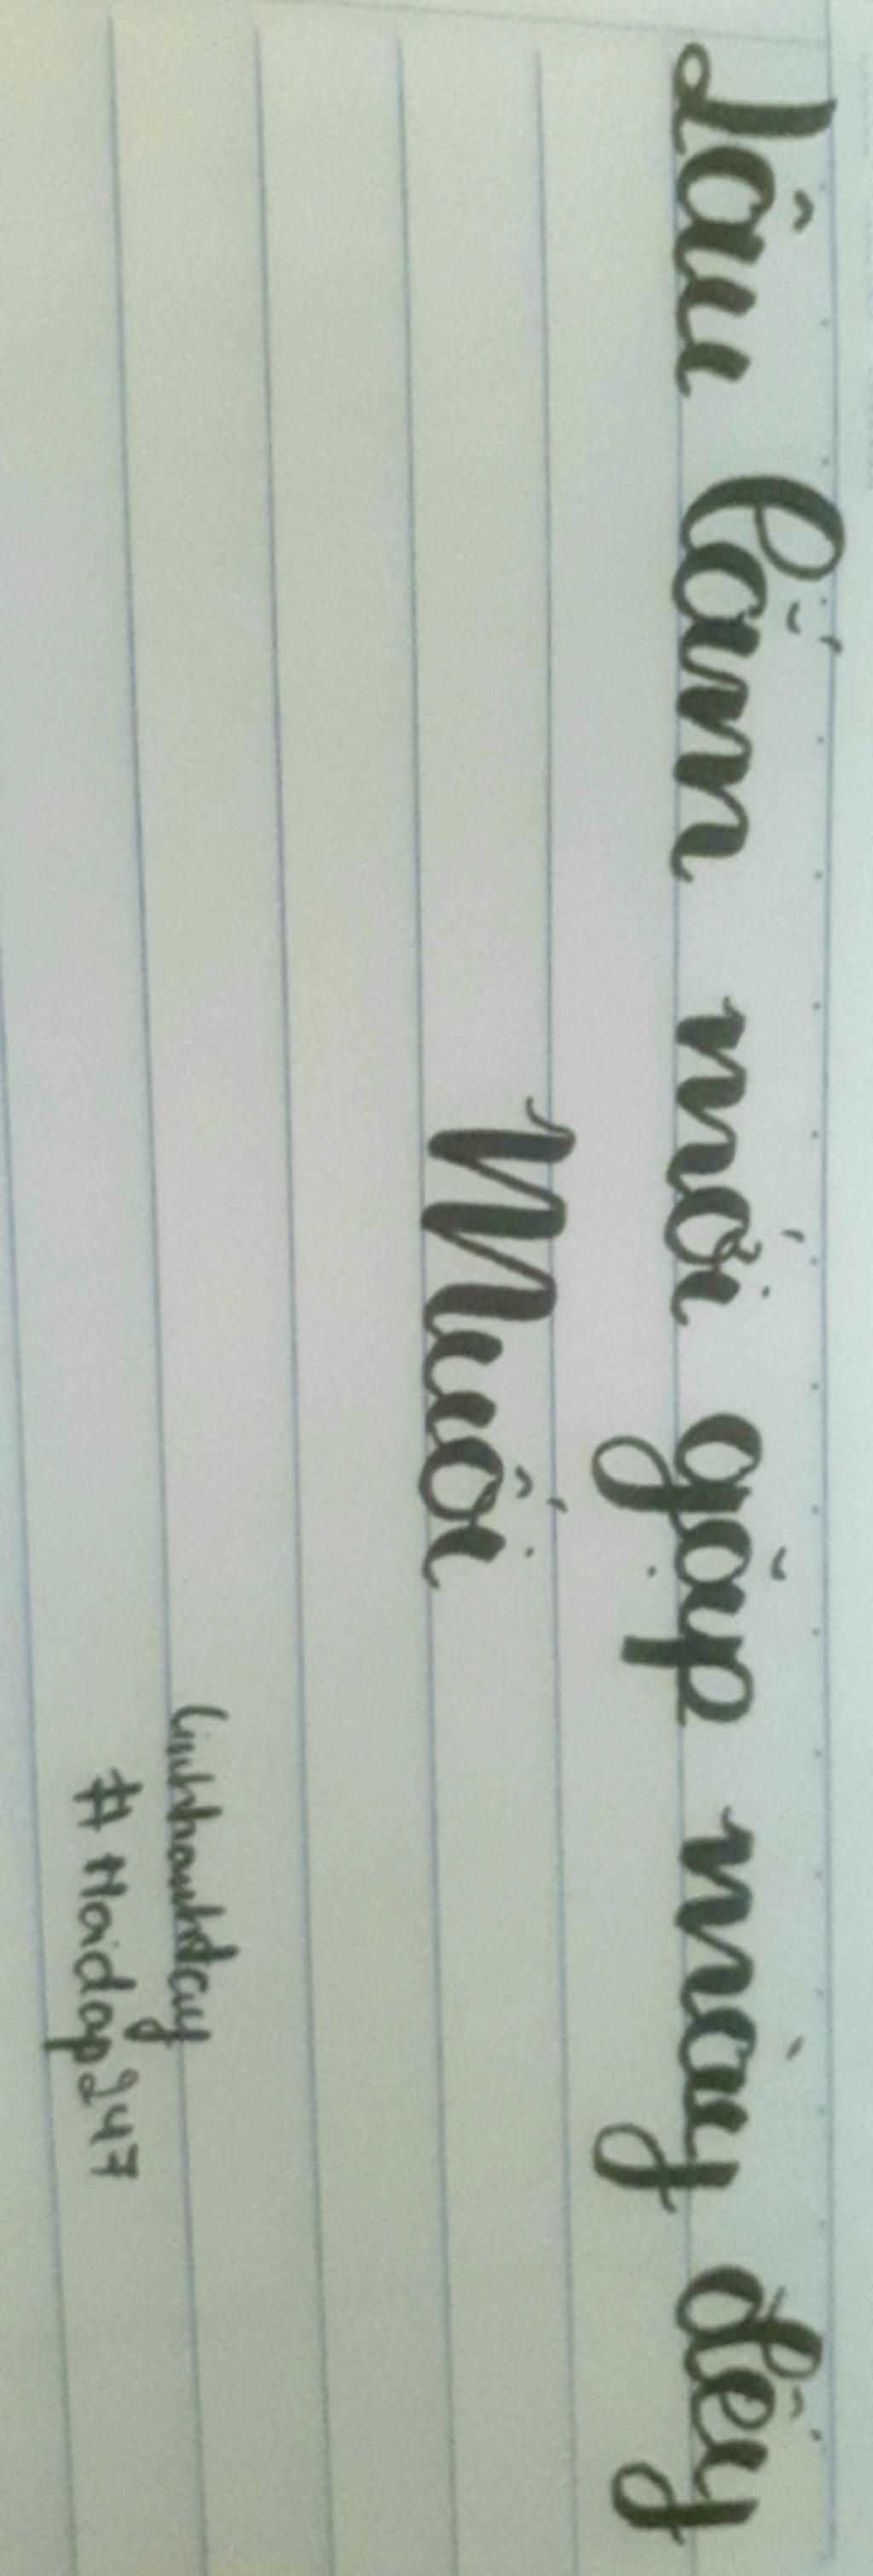 Lâu lắm mới gặp mày đếy
Muối
linhhanhday
#Hoidap247